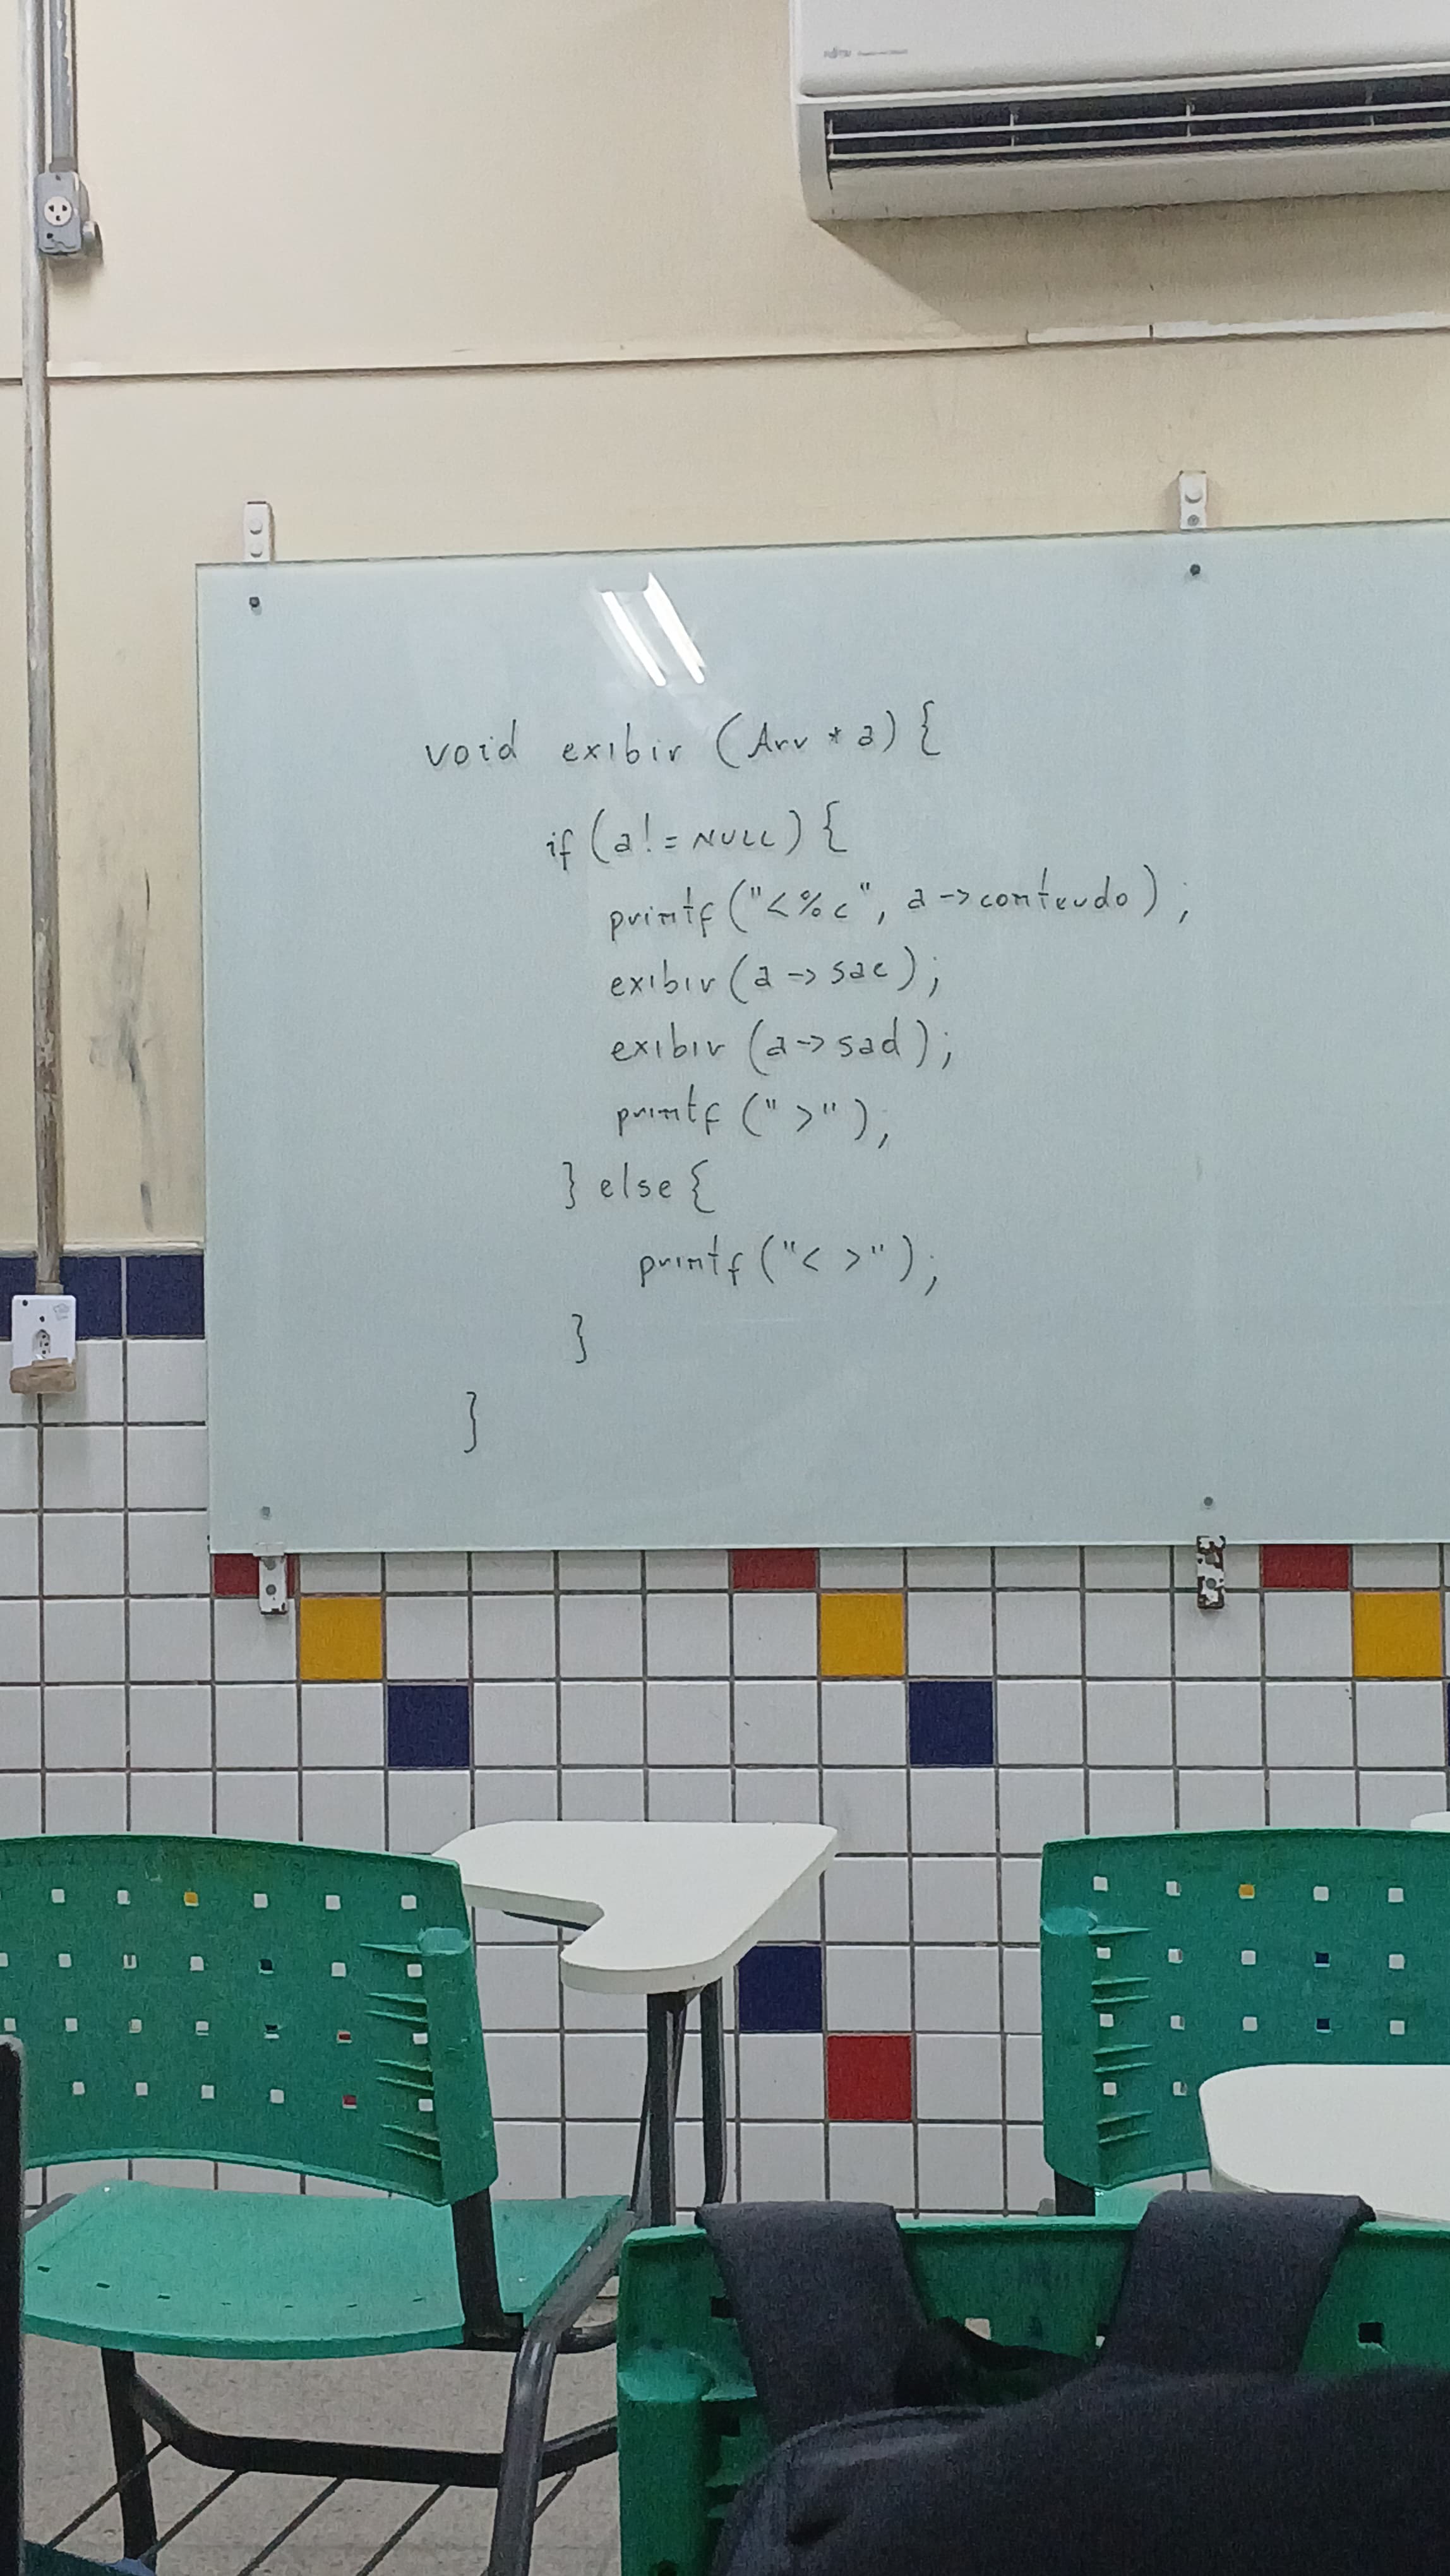 FUJITSU
void exibir (Arv * a) {
if (a != NULL) {
printf ("<%c", a->conteudo);
exibir (a -> sae);
exibir (a -> sad);
printf (" >");
} else {
printf ("< >");
}
}